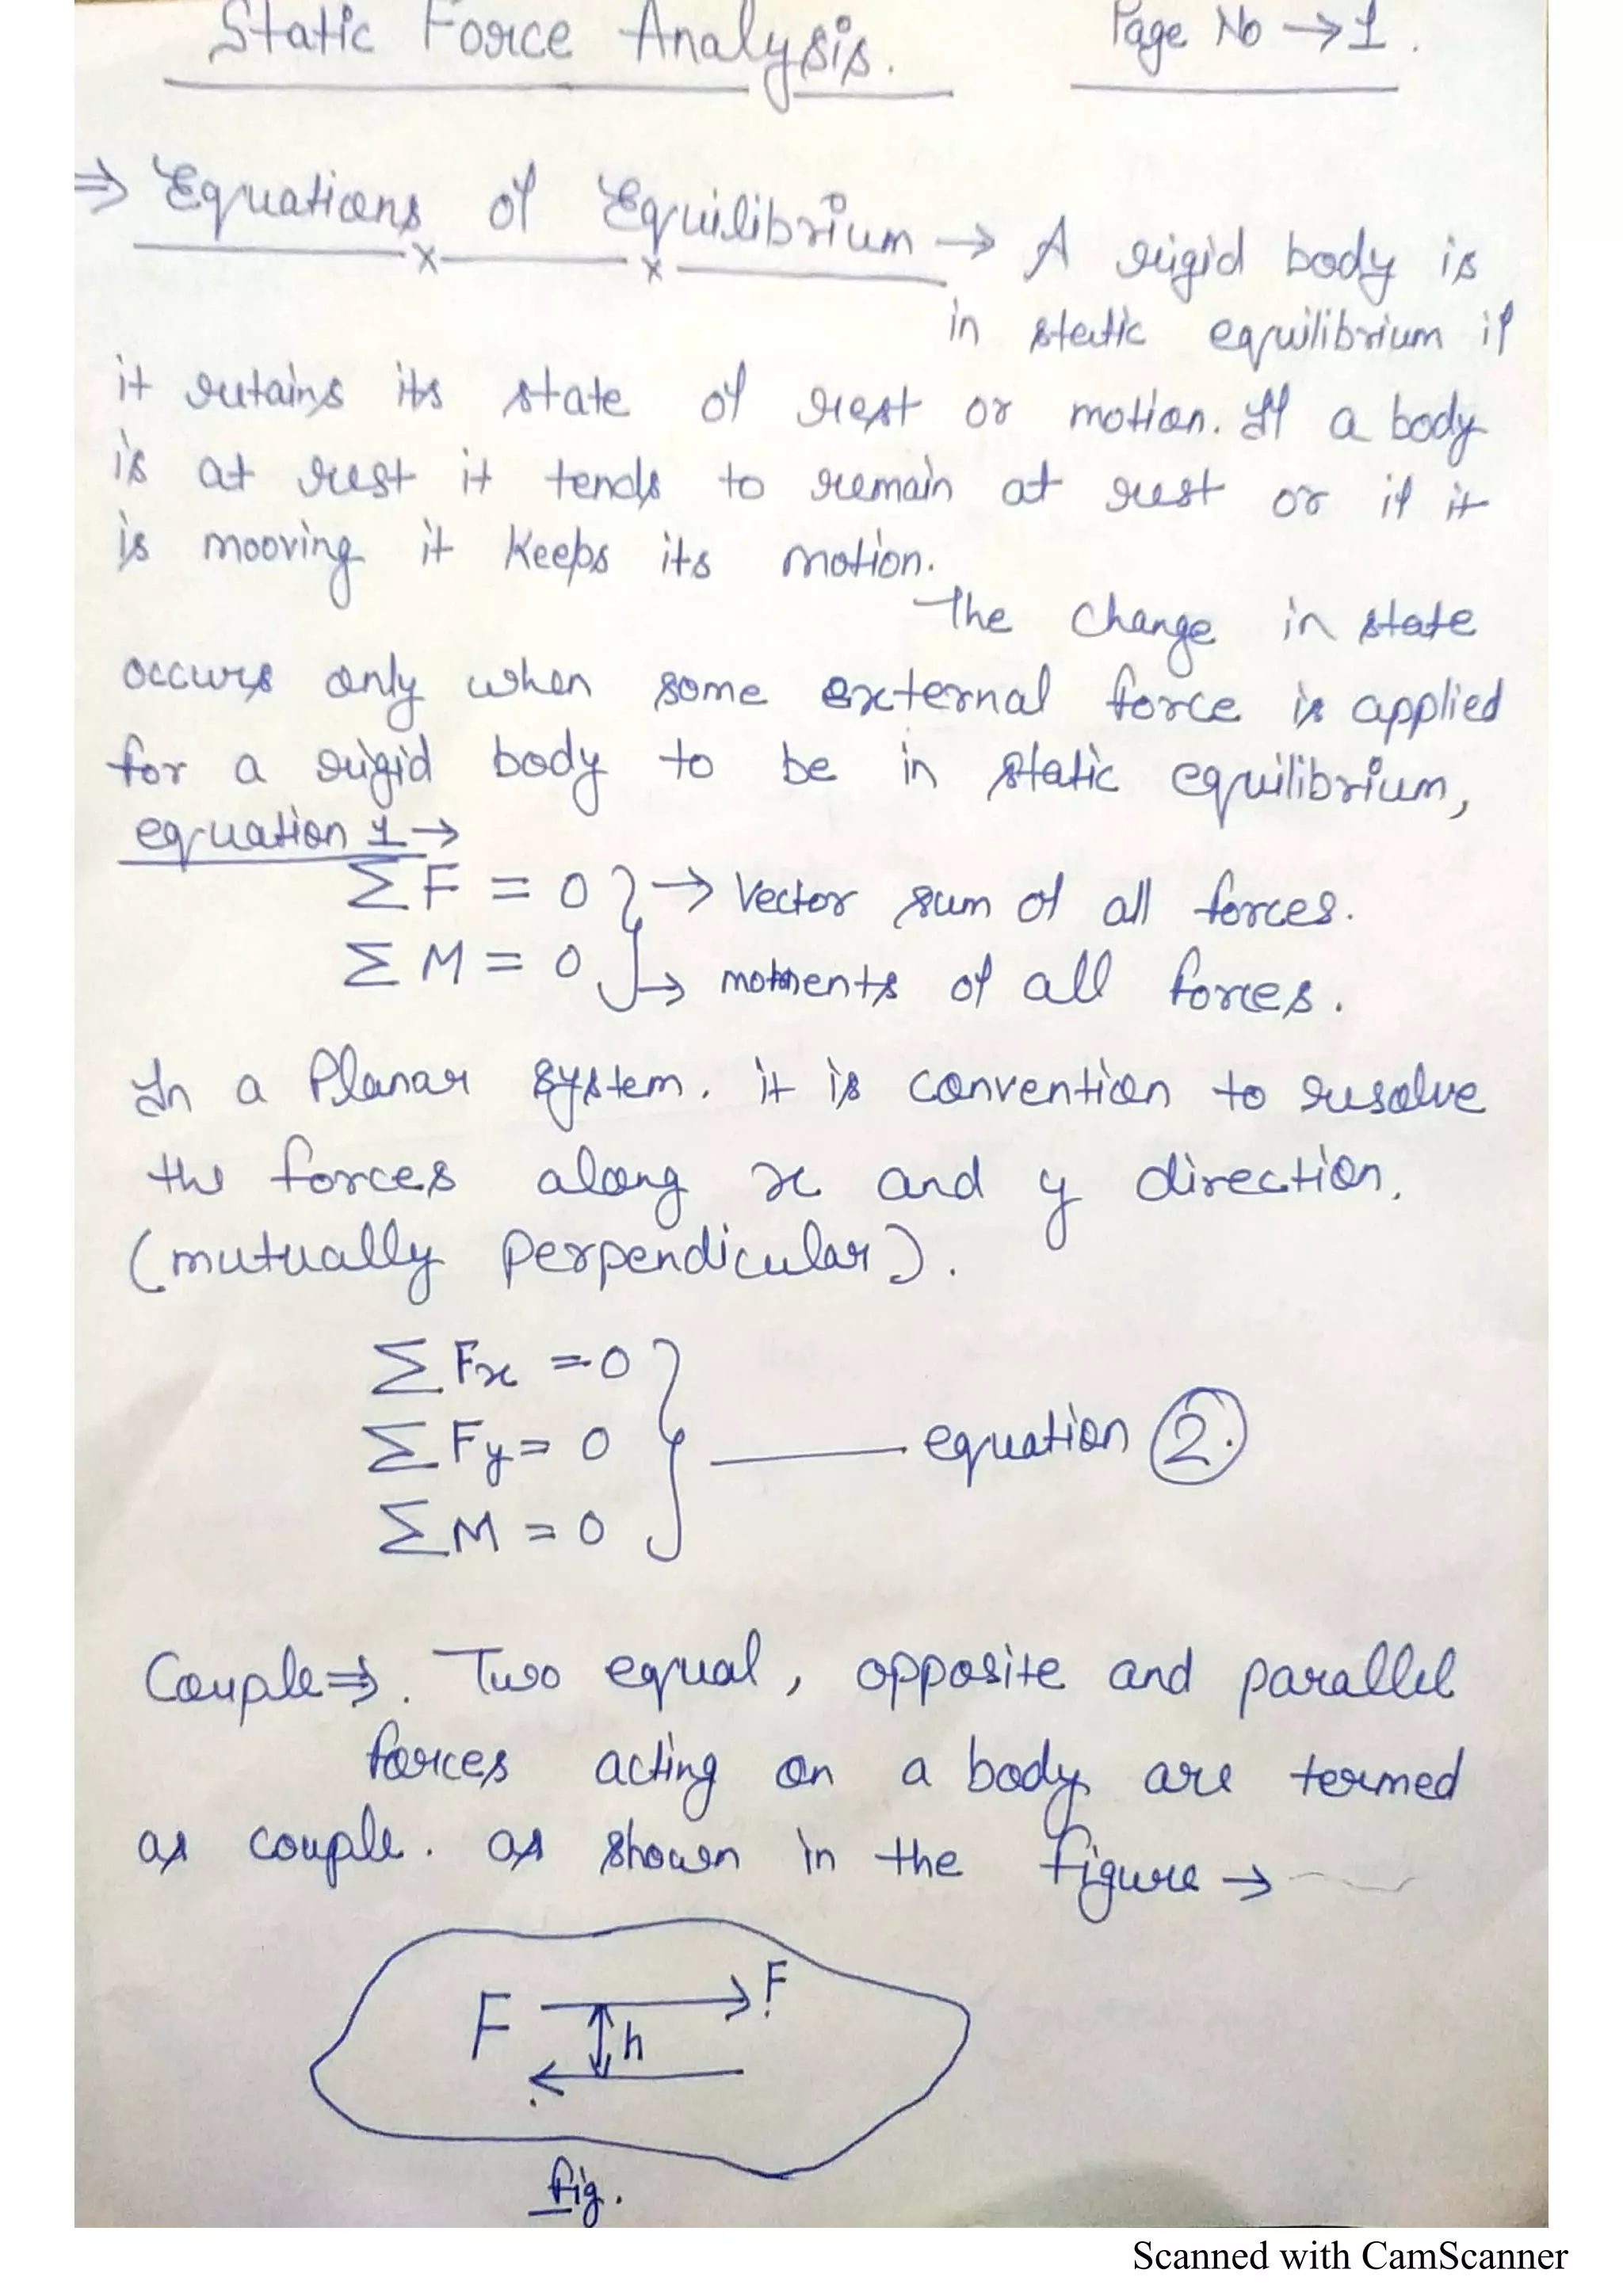 Static Force Analysis. Page No → 1.
⇒ Equations of Equilibrium → A rigid body is
in static equilibrium if
it retains its state of rest or motion. If a body
is at rest it tends to remain at rest or if it
is mooving it keeps its motion.
The change in state
occurs only when some external force is applied
for a rigid body to be in static equilibrium,
equation 1 →
ΣF = 0 } → Vector sum of all forces.
ΣM = 0 } → moments of all forces.
In a Planar system. it is convention to resolve
the forces along x and y direction.
(mutually perpendicular).
ΣFx = 0
ΣFy = 0 } —— equation 2.
ΣM = 0
Couple ⇒. Two equal, opposite and parallel
forces acting on a body are termed
as couple. as shown in the figure →
F
F
h
fig.
Scanned with CamScanner